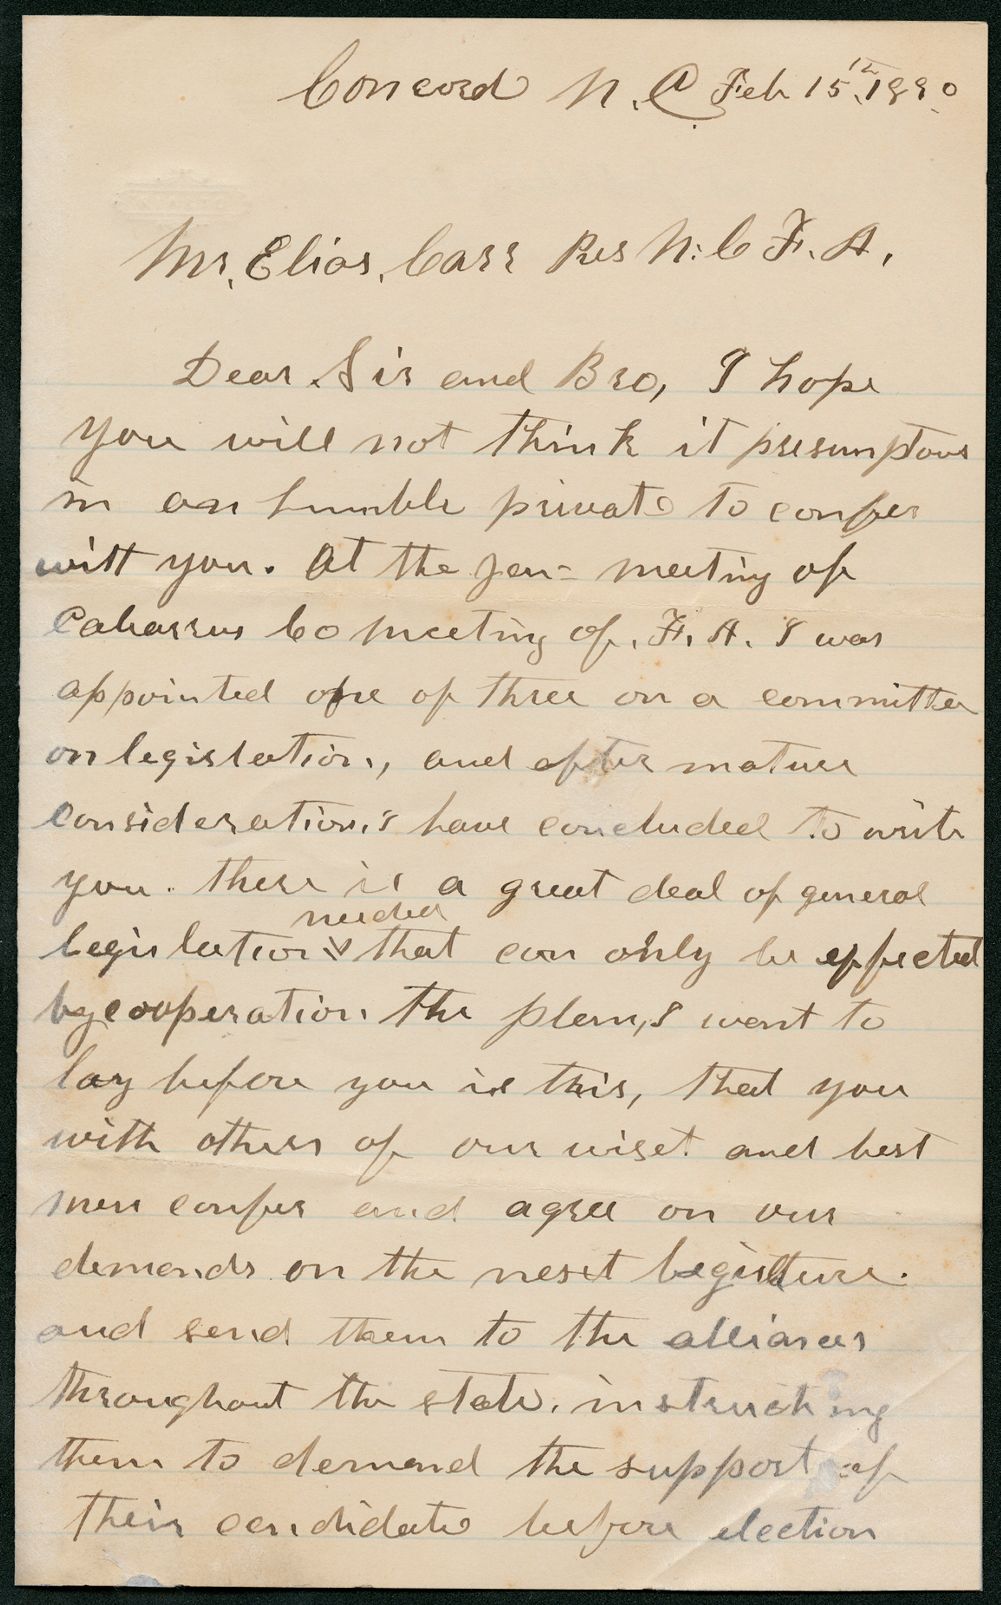 Concord N. C Feb 15th, 1890.
Mr. Elias. Carr Pres N. C F. A.
Dear Sir and Bro, I hope
you will not think it presumptous
in an humble private to confer
with you. At the Jan- meeting of
Cabarrus Co meeting of. F. A. I was
appointed one of three on a committee
on legislation, and after mature
consideration, I have concluded to write
you. there is a great deal of general
needed
legislation that can only be effected
by cooperation the plan, I want to
lay before you is this, that you
with others of our wiset and best
men confer and agree on our
demands on the next legislture.
and send them to the alliances
throughout the state. instructing
them to demand the support of
their candidate before election